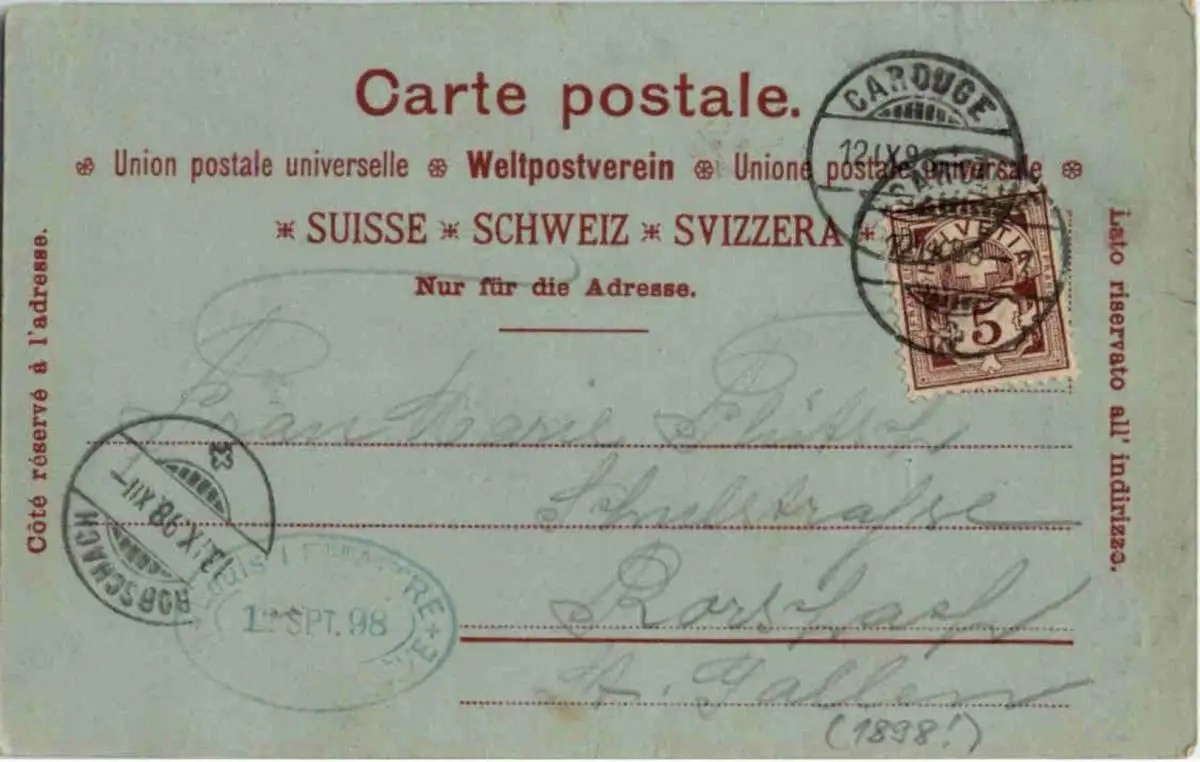 Carte postale.
Union postale universelle Weltpostverein Unione postale universale
SUISSE SCHWEIZ SVIZZERA
Nur für die Adresse.
Côté réservé à l'adresse.
Lato riservato all' indirizzo.
CAROUGE
12.IX.98
CAROUGE
12.IX.98
HELVETIA
5
Marie
Schulstrasse
Rorschach
St. Gallen
(1898!)
RORSCHACH
13.IX.98.XII
SPT. 98